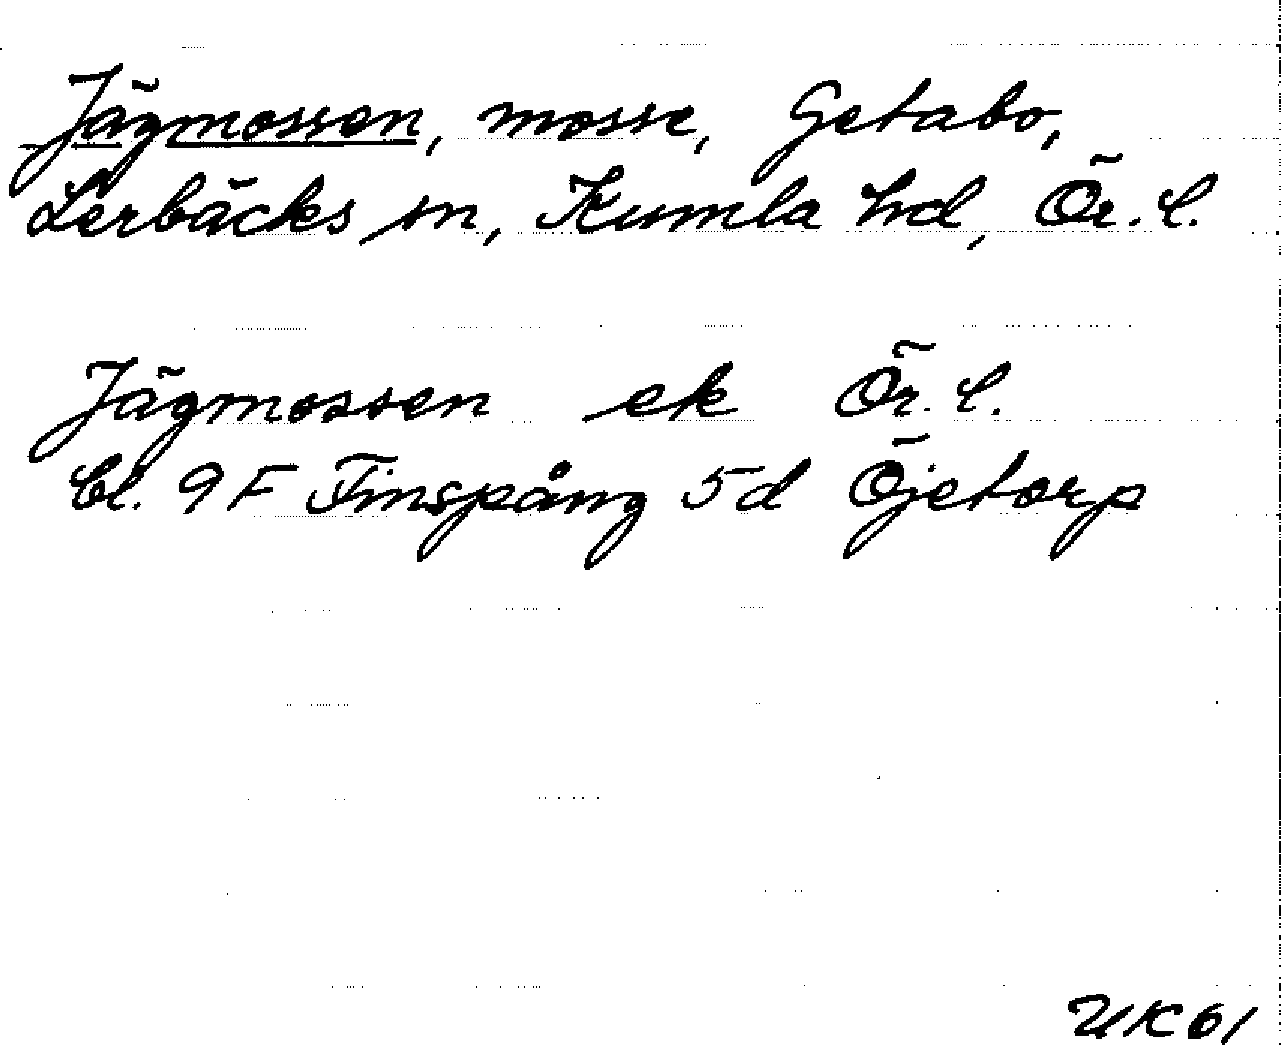 Jägmossen, mosse, Getabo,
Lerbäcks sn, Kumla hd, Ör. l.
Jägmossen ek Ör. l.
bl. 9F Finspång 5d Öjetorp
UK61